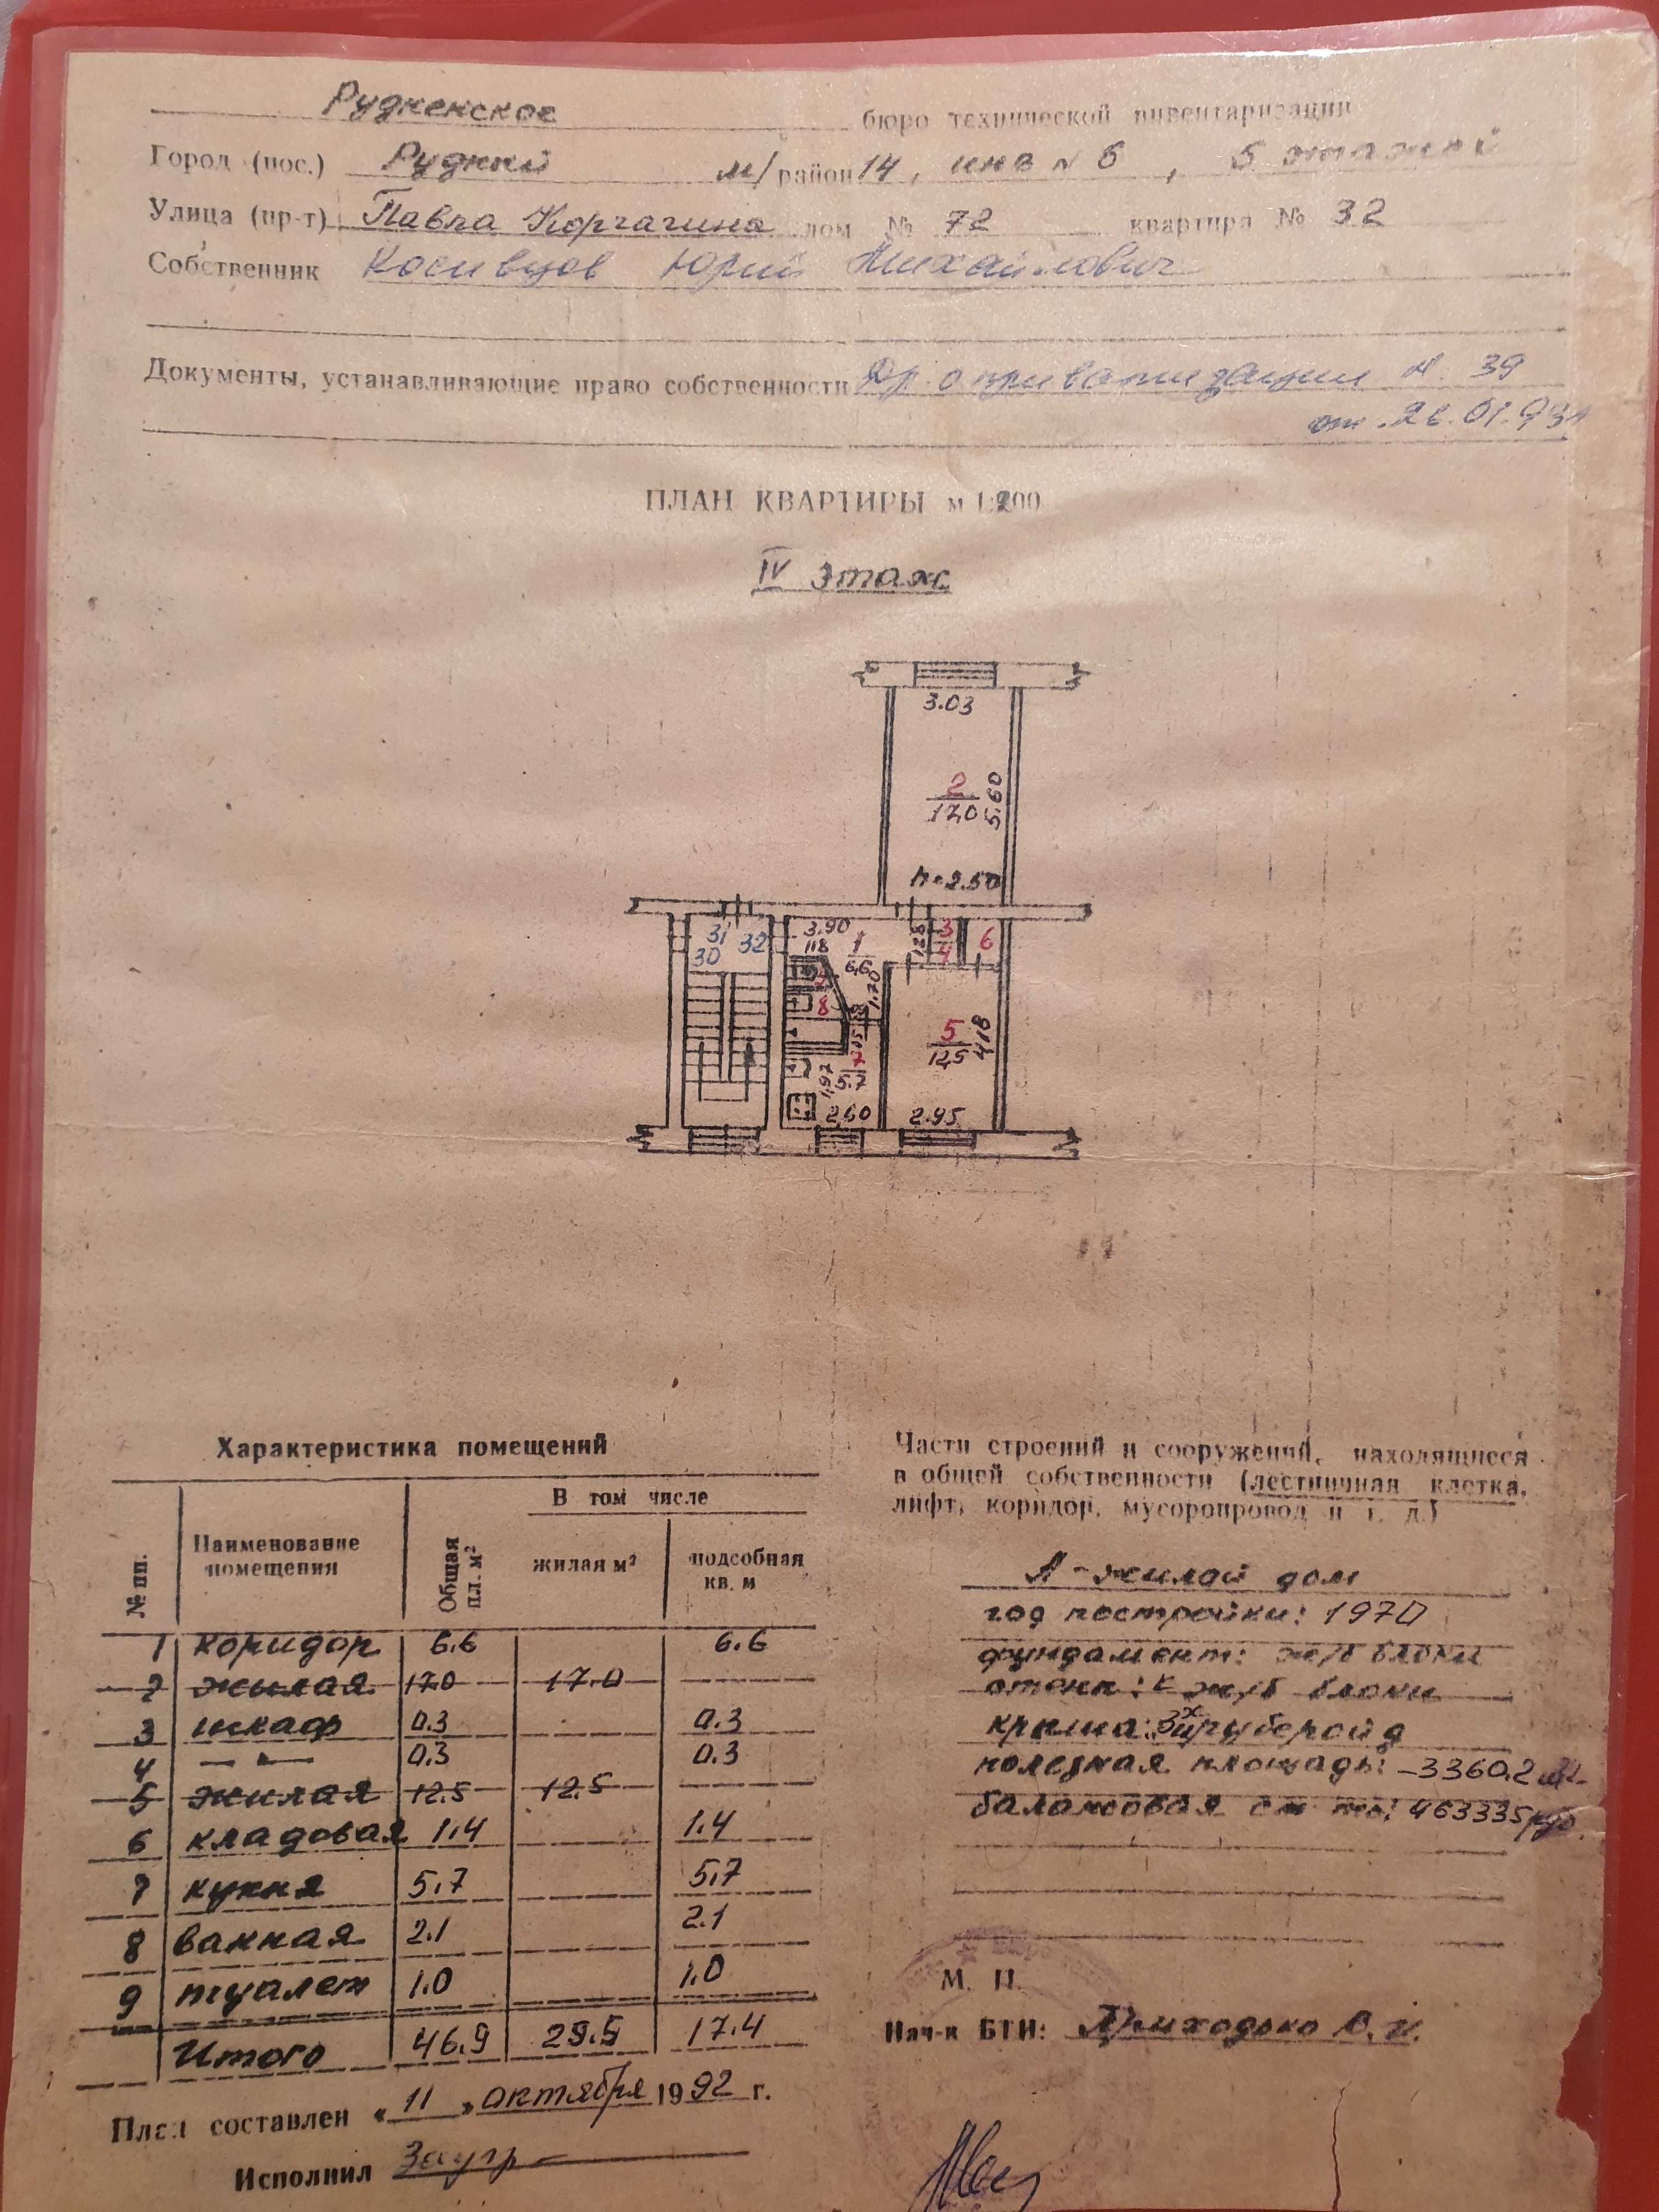 Рудненское бюро технической инвентаризации
Город (пос.) Рудный м/район 14, инв N 6, 5 этажный
Улица (пр-т) Павла Корчагина дом № 72 квартира № 32
Собственник Косивцов Юрий Михайлович
Документы, устанавливающие право собственности Др. о приватизации N. 39
от. 26.01.93г
ПЛАН КВАРТИРЫ м 1:200
IV этаж
3.03
2
17,0
5.60
h=2.50
31
30
32
3.90
118
1
6,6
3
4
6
1.70
8
5
12,5
4.18
7
5.7
1.97
2,60
2.95
Характеристика помещений
№ пп.
Наименование помещения
Общая пл. м²
В том числе
жилая м²
подсобная кв. м
1 коридор 6.6 6.6
2 жилая 17.0 17.0
3 шкаф 0.3 0.3
4 — " — 0.3 0.3
5 жилая 12.5 12.5
6 кладовая 1.4 1.4
7 кухня 5.7 5.7
8 ванная 2.1 2.1
9 туалет 1.0 1.0
Итого 46.9 29.5 17.4
План составлен «11» октября 1992 г.
Исполнил
Части строений и сооружений, находящиеся
в общей собственности (лестничная клетка,
лифт, коридор, мусоропровод и т. д.)
А - жилой дом
год постройки: 1970
фундамент: ж/б блоки
стены: ж/б блоки
крыша: 3х рубероид
полезная площадь: -3360.2 м²
балансовая ст-ть: 463335 руб.
М. П.
Нач-к БТИ: Приходько